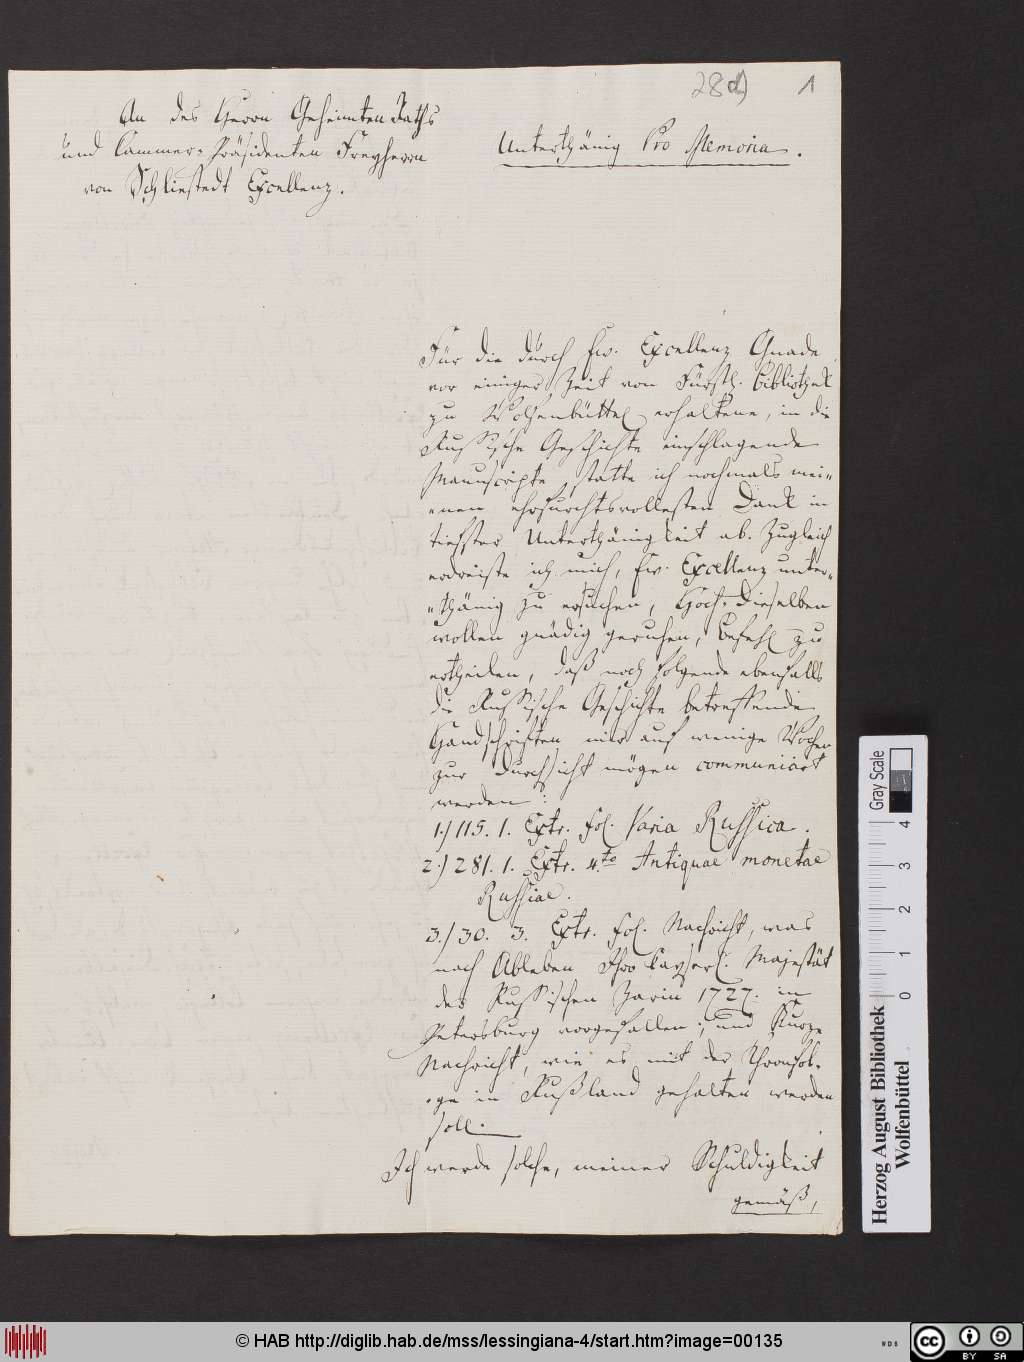 28d) 1
An des Herrn Geheimten Raths
und Cammer-Präsidenten Freyherrn
von Schliestedt Excellenz.
Unterthänig Pro Memoria.
Für die durch Ew. Excellenz Gnade
vor einiger Zeit von Fürstl. Bibliothek
zu Wolfenbüttel erhaltene, in die
Russische Geschichte einschlagende
Manuscripte statte ich nochmals mei„
„nen ehrfurchtsvollesten Dank in
tiefster Unterthänigkeit ab. Zugleich
erdreiste ich mich, Ew. Excellenz unter„
„thänig zu ersuchen, Hoch-Dieselben
wollen gnädig geruhen, Befehl zu
ertheilen, daß noch folgende ebenfalls
die Russische Geschichte betreffende
Handschriften mir auf wenige Wochen
zur Durchsicht mögen communicirt
werden:
1.) 115. 1. Extr. fol. Varia Russica.
2.) 281. 1. Extr. 4.to Antiquae monetae
Russiae.
3.) 30. 3. Extr. fol. Nachricht, was
nach Ableben Ihro Kayserl. Majestät
der Russischen Zarin 1727. in
Petersburg vorgefallen; und Kurze
Nachricht, wie es mit der Thronfol-
-ge in Rußland gehalten werden
soll.
Ich werde solche, meiner Schuldigkeit
gemäß,
Gray Scale
0 1 2 3 4
Herzog August Bibliothek
Wolfenbüttel
© HAB http://diglib.hab.de/mss/lessingiana-4/start.htm?image=00135
WDB
cc BY SA